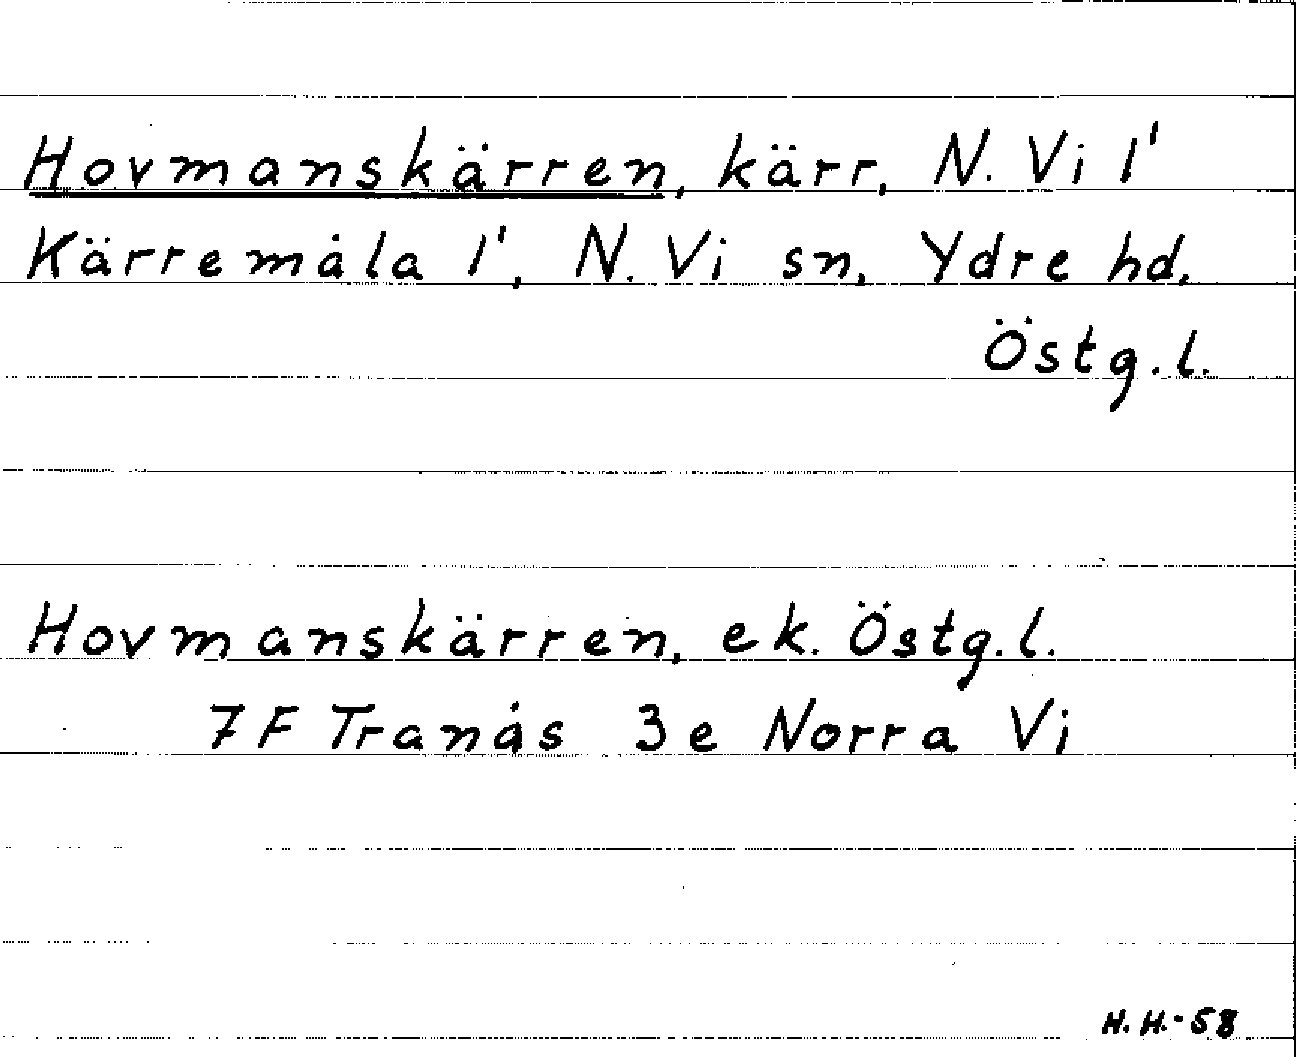 Hovmanskärren, kärr, N. Vi 1'
Kärremåla 1', N. Vi sn, Ydre hd.
Östg.l.
Hovmanskärren, ek. Östg.l.
7F Tranås 3e Norra Vi
H.H.-58